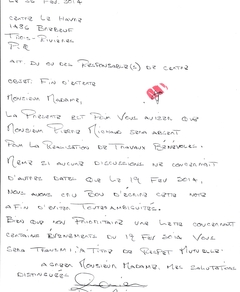 Le 26 Fev. 2014
Centre Le Havre
1486 Brebeuf
Trois-Rivières
P.Q
Att. Du ou des Responsable(s) de centre
Objet: Fin d'entente
Monsieur Madame,
La Presente est pour vous aviser que
Monsieur Pierre Michaud sera absent
pour la realisation de travaux bénévoles.
Meme si aucune discussions ne concernait
d'autres dates que le 19 Fev 2014,
nous avons cru bon d'écrire cette note
afin d'éviter toutes ambiguïtés.
Bien que non prioritaire une lettre concernant
certains évènements du 19 Fev 2014 vous
sera transmi, a titre de respet mutuelle.
Agreer Monsieur Madame, mes salutations
distinguées